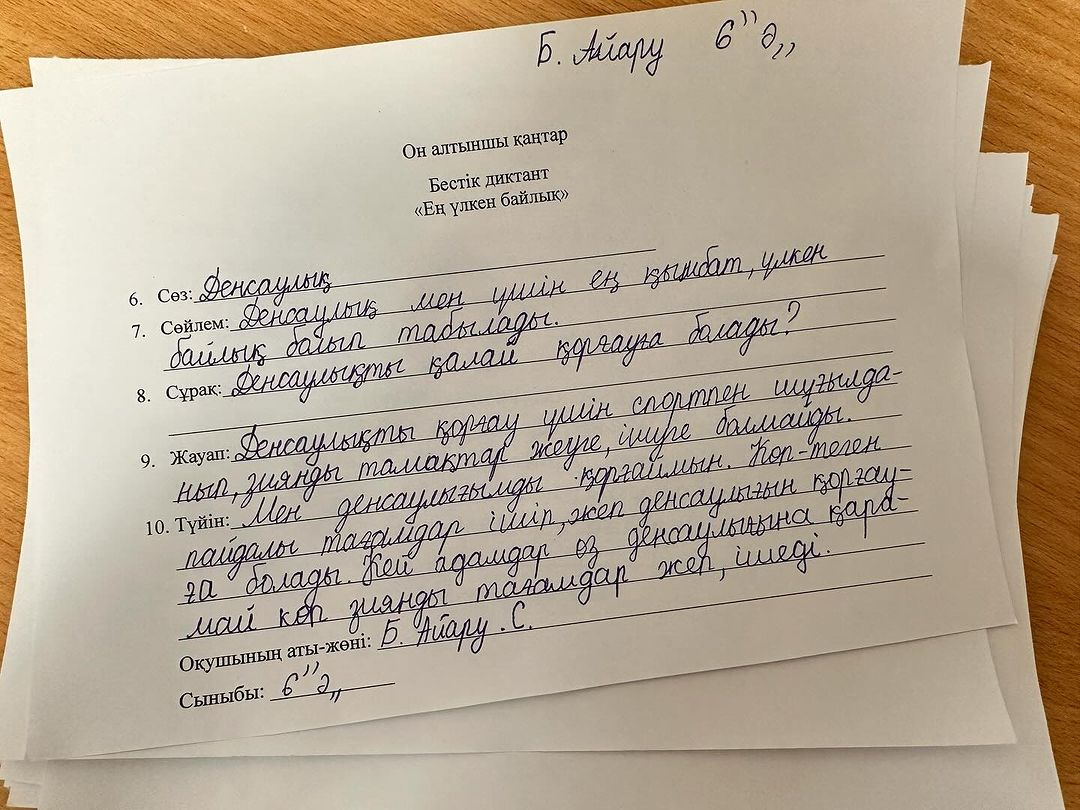 Б. Айару 6"Ә„
Он алтыншы қаңтар
Бестік диктант
«Ең үлкен байлық»
6. Сөз: Денсаулық
7. Сөйлем: Денсаулық мен үшін ең қымбат, үлкен
байлық болып табылады.
8. Сұрақ: Денсаулықты қалай қорғауға болады?
9. Жауап: Денсаулықты қорғау үшін спортпен шұғылда-
нып, зиянды тамақтар жеуге, ішуге болмайды.
10. Түйін: Мен денсаулығымды қорғаймын. Көп-теген
пайдалы тағамдар ішіп, жеп денсаулығын қорғау-
ға болады. Кей адамдар өз денсаулығына қара-
май көп зиянды тағамдар жеп, ішеді.
Оқушының аты-жөні: Б. Айару .С.
Сыныбы: 6"Ә„